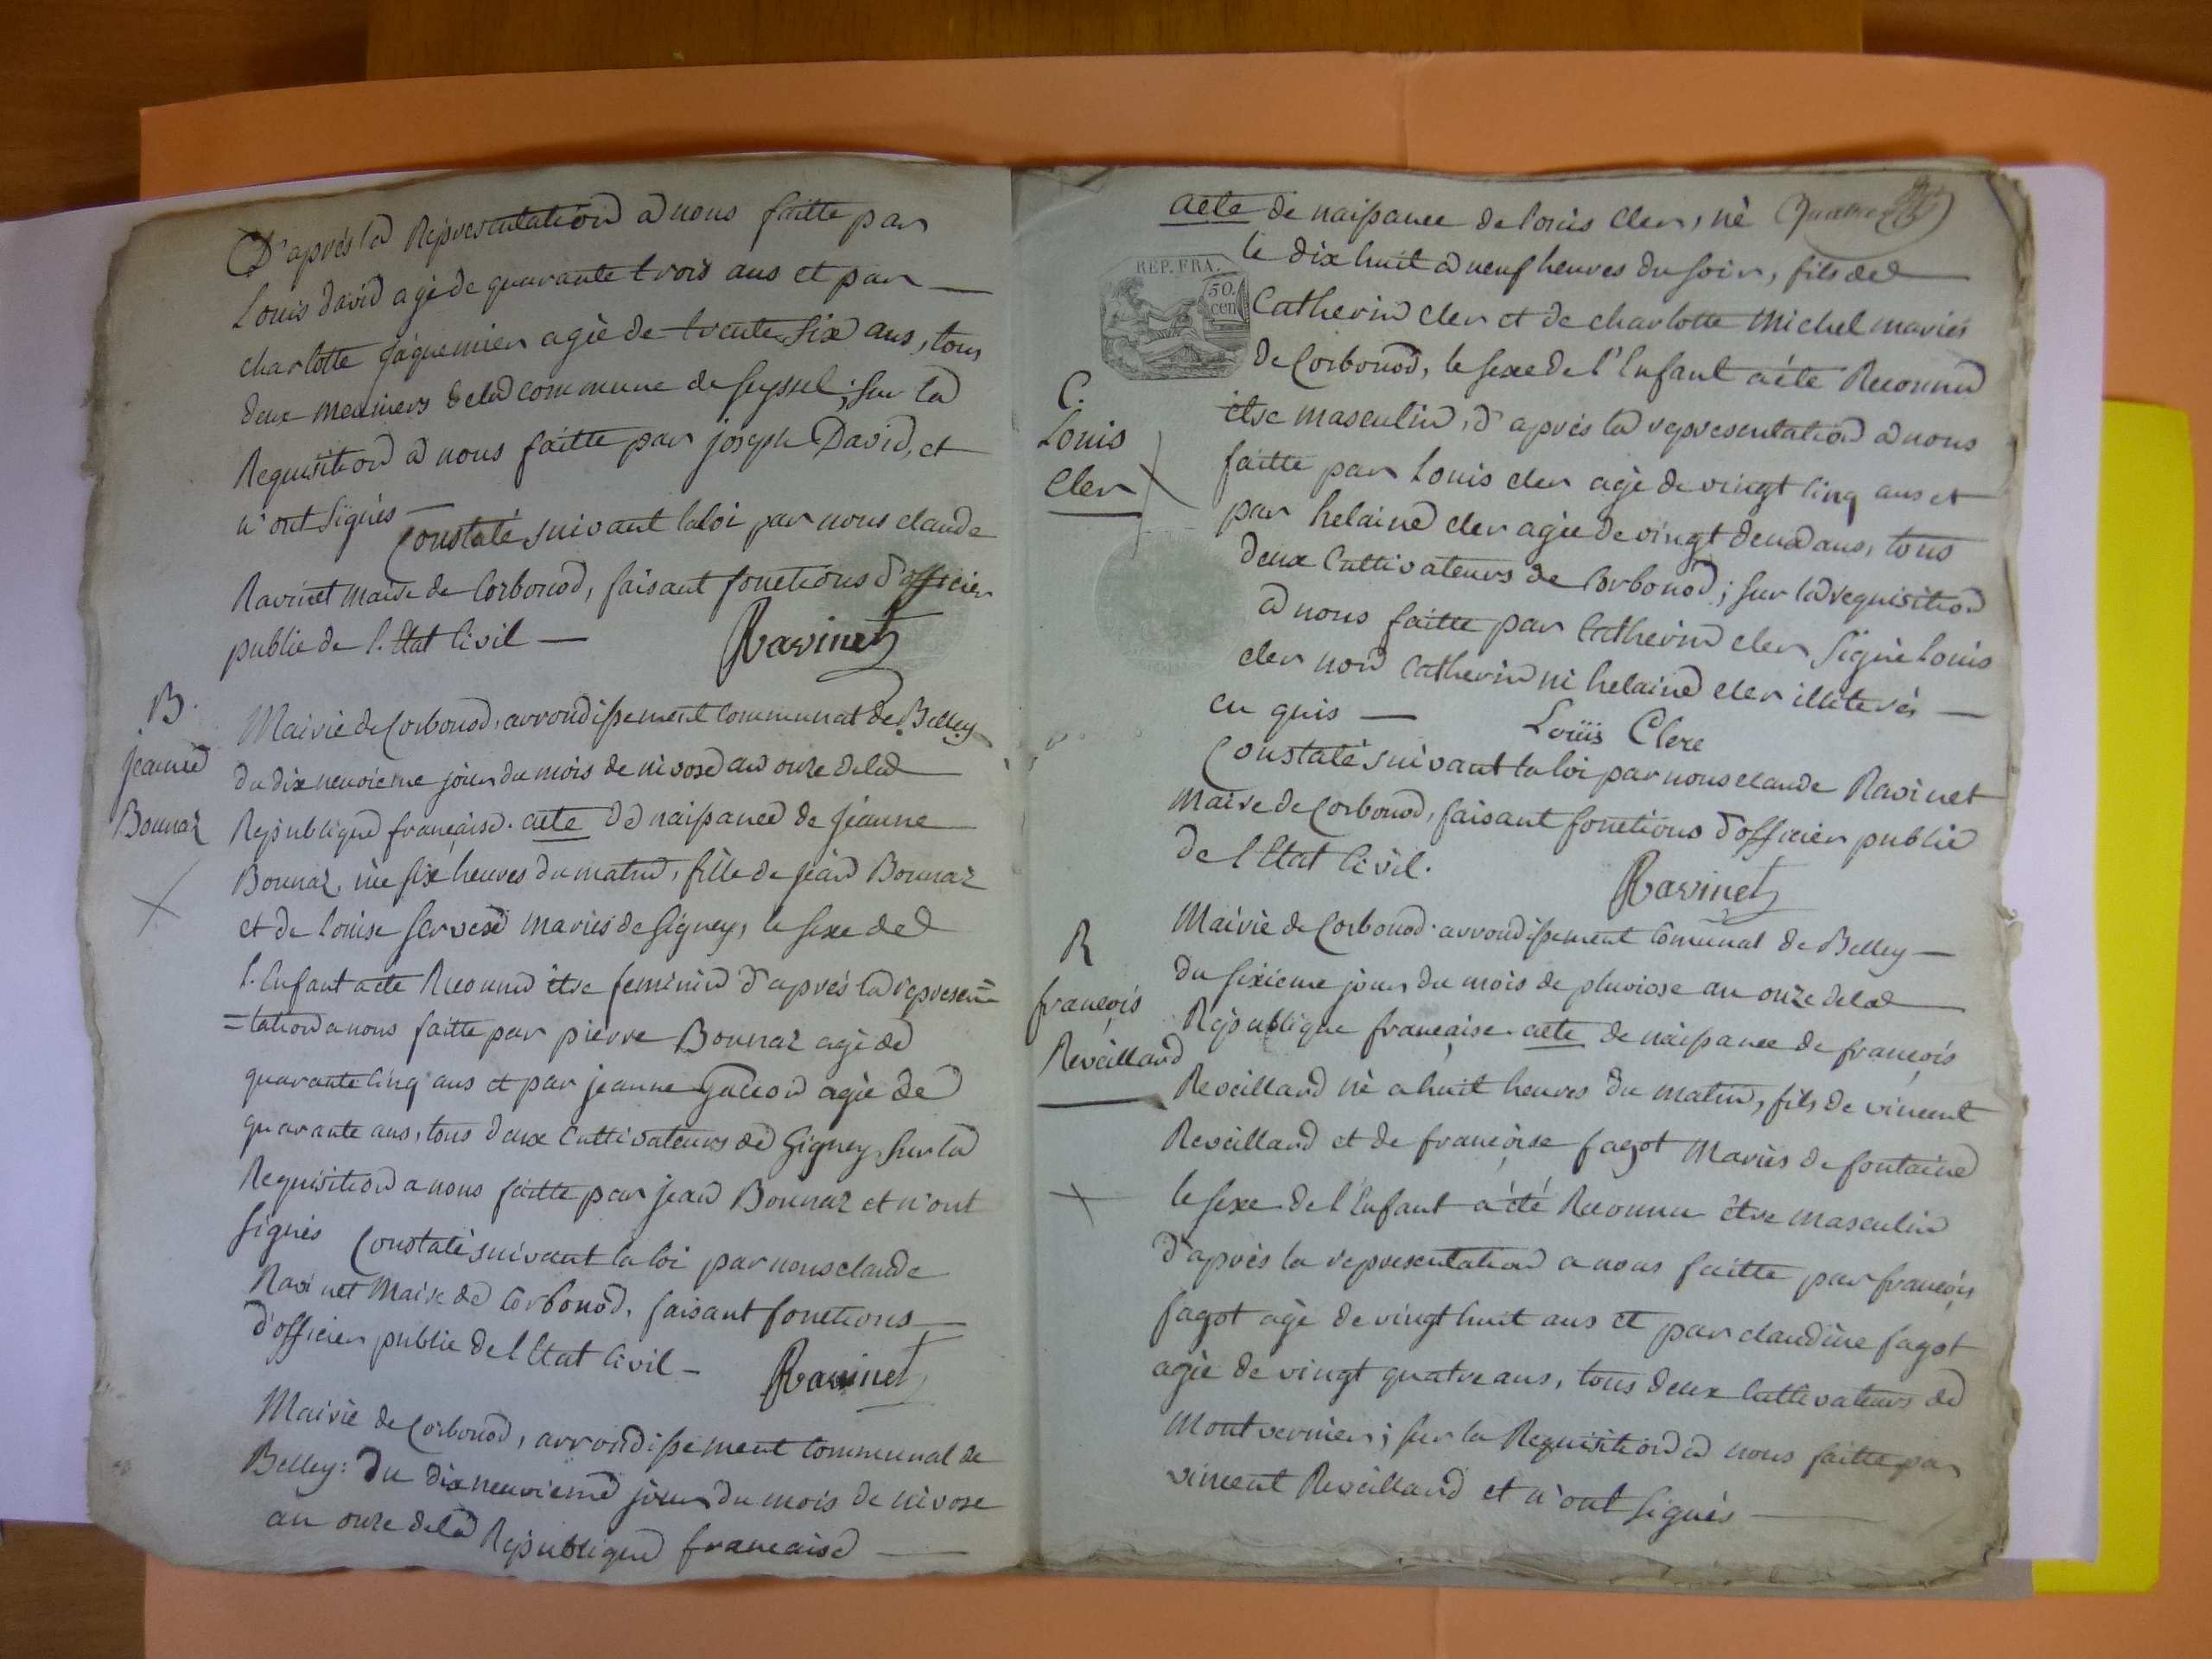 D'après la Representation a nous faitte par
Louis david agé de quarante trois ans et par —
charlotte Jáquemier agée de trente six ans, tous
deux meuniers dela commune de seyssel; sur la
Requisition a nous faitte par joseph David, et
n'ont signés —
Constaté suivant la loi par nous claude
Ravinet maire de Corbonod, faisant fonctions d'officier
public de l'Etat Civil —
Ravinet
B.
jeanne
Bonnaz
Mairie de Corbonod, arrondissement Communal de Belley
du dix neuvieme jour du mois de nivose an onze dela
Republique française. acte de naissance de jeanne
Bonnaz, née six heures du matin, fille de jean Bonnaz
et de louise mariés de Gigney, le sexe de
l'Enfant a été Reconnu être feminin d'après la represen=
=tation a nous faitte par pierre Bonnaz agé de
quarante cinq ans et par jeanne agée de
quarante ans, tous deux Cultivateurs de Gigney sur la
Requisition a nous faitte par jean Bonnaz et n'ont
signés Constaté suivant la loi par nous claude
Ravinet Maire de Corbonod, faisant fonctions
d'officier public de l'Etat Civil —
Ravinet
Mairie de Corbonod, arrondissement Communal de
Belley: du dix neuvieme jour du mois de nivose
an onze dela Republique française —
Quatre
acte de naissance de louis cler, né
REP. FRA.
50.
cen
le dix huit a neuf heures du soir, fils de
Catherin cler et de charlotte Michel mariés
de Corbonod, le sexe de l'Enfant a été Reconnu
être masculin, d'après la representation a nous
C.
Louis
Cler
faitte par Louis cler agé de vingt cinq ans et
par helaine cler agée de vingt deux ans, tous
deux Cultivateurs de Corbonod; sur la requisition
a nous faitte par Catherin cler signé Louis
cler non Catherin ni helaine cler illiterés —
en quis —
Loüis Clere
Constaté suivant la loi par nous claude Ravinet
Maire de Corbonod, faisant fonctions d'officier public
de l'Etat Civil.
Ravinet
R
françois
Reveilland
Mairie de Corbonod. arrondissement Comunal de Belley —
du sixieme jour du mois de pluviose an onze dela
Republique française. acte de naissance de françois
Reveilland né a huit heures du matin, fils de vincent
Reveilland et de françoise fagot Mariés de fontaine
le sexe de l'Enfant a été Reconnu être masculin
d'après la representation a nous faitte par françois
fagot agé de vingt huit ans et par claudine fagot
agée de vingt quatre ans, tous deux Cultivateurs de
Montvernier; sur la Requisition a nous faitte par
vincent Reveilland et n'ont signés —